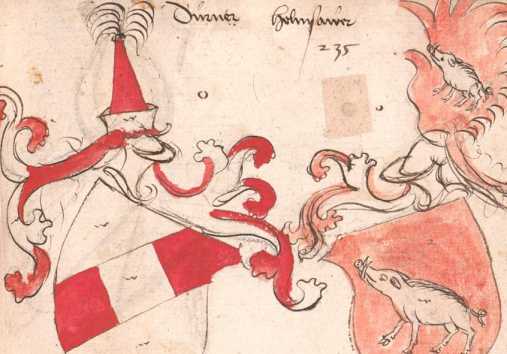 Durner holnsawer
235